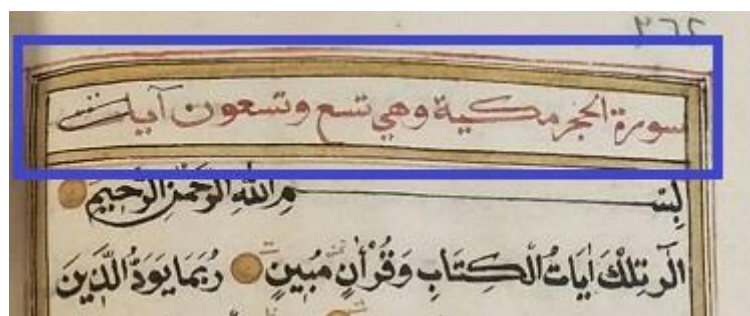 ٣٦٢
سورة الحجر مكية وهي تسع وتسعون آيات
بِسْمِ اللَّهِ الرَّحْمَٰنِ الرَّحِيمِ
الٓر تِلْكَ اٰيَاتُ الْكِتَابِ وَقُرْاٰنٍ مُبِينٍ رُبَمَا يَوَدُّ الَّذِينَ